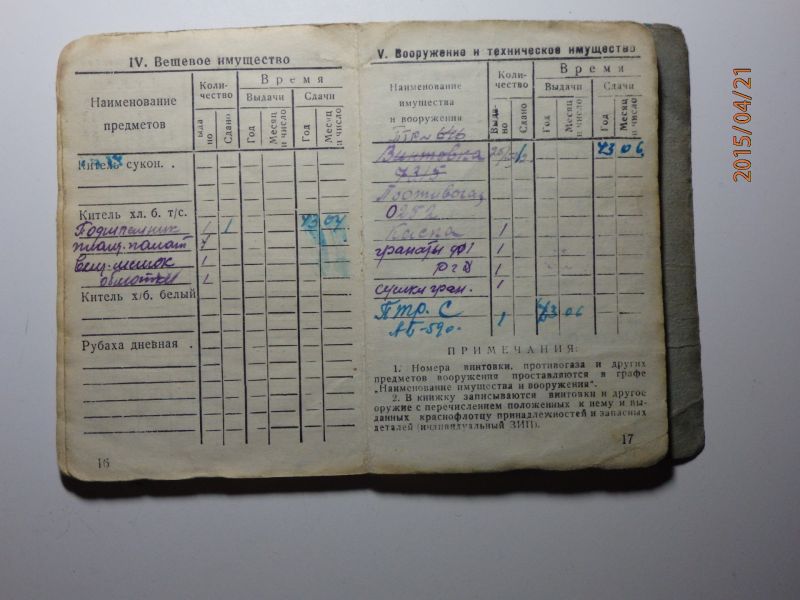 IV. Вещевое имущество
Наименование предметов
Коли-
чество
Выда
но
Сдано
Время
Выдачи
Сдачи
Год
Месяц
и число
Год
Месяц
и число
Китель сукон. .
Китель хл. б. т/с.
Подшлемник 1 1 43 04
плащ-палат 1
Вещ. мешок 1
обмотки 1
Китель х/б. белый
Рубаха дневная .
16
V. Вооружение и техническое имущество
Наименование
имущества
и вооружения
Коли-
чество
Выда-
но
Сдано
Время
Выдачи
Сдачи
Год
Месяц
и число
Год
Месяц
и число
Винтовка 43 06
Каска 1
гранаты ф1 1
РГД
сумки гран. 1
Птр. С 1 43 06
ПРИМЕЧАНИЯ:
1. Номера винтовки, противогаза и других
предметов вооружения проставляются в графе
„Наименование имущества и вооружения".
2. В книжку записываются винтовки и другое
оружие с перечислением положенных к нему и вы-
данных краснофлотцу принадлежностей и запасных
деталей (индивидуальный ЗИП).
17
2015/04/21